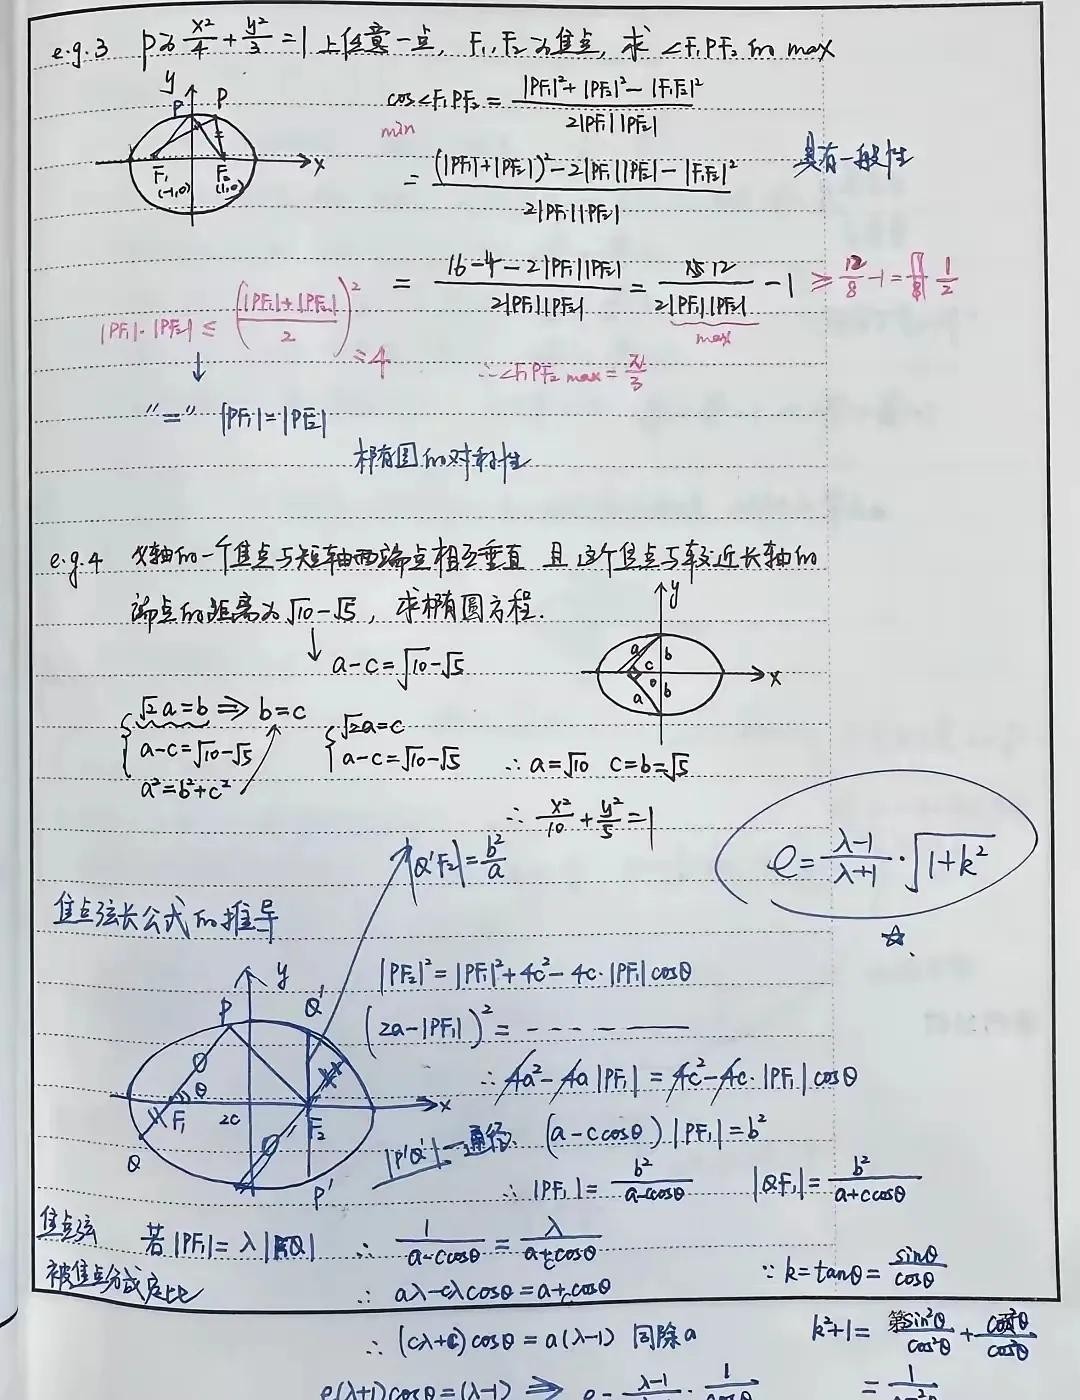 e.g.3 P为 x²/4 + y²/3 = 1 上任意一点, F₁,F₂为焦点, 求∠F₁PF₂的max
y P P
F₁ (-1,0) F₂ (1,0) x
cos∠F₁PF₂ = (|PF₁|²+|PF₂|²-|F₁F₂|²)/(2|PF₁||PF₂|)
min
= ((|PF₁|+|PF₂|)²-2|PF₁||PF₂|-|F₁F₂|²)/(2|PF₁||PF₂|)
具有一般性
= (16-4-2|PF₁||PF₂|)/(2|PF₁||PF₂|) = 12/(2|PF₁||PF₂|) - 1 ≥ 12/8 - 1 = 1/2
max
|PF₁|·|PF₂| ≤ ((|PF₁|+|PF₂|)/2)² = 4
∴∠F₁PF₂ max = π/3
↓
"=" |PF₁|=|PF₂|
椭圆的对称性
e.g.4 x轴的一个焦点与短轴两端点相互垂直 且这个焦点与较近长轴的
端点的距离为√10-√5, 求椭圆方程.
↓ a-c=√10-√5
y a b c o a b x
{ √2a=b ⇒ b=c
a-c=√10-√5
a²=b²+c²
{ √2a=c
a-c=√10-√5
∴ a=√10 c=b=√5
∴ x²/10 + y²/5 = 1
e = (λ-1)/(λ+1) · √(1+k²)
☆
|Q'F₂| = b²/a
焦点弦长公式的推导
y P Q' θ F₁ 2c F₂ x Q P'
|PF₂|² = |PF₁|²+4c²-4c·|PF₁|cosθ
(2a-|PF₁|)² = - - - - - -
∴ 4a²-4a|PF₁| = 4c²-4c·|PF₁|cosθ
|P'Q'|—通径
(a-ccosθ)|PF₁| = b²
∴ |PF₁| = b²/(a-ccosθ) |QF₁| = b²/(a+ccosθ)
焦点弦
被焦点分成定比
若|PF₁|=λ|F₁Q| ∴ 1/(a-ccosθ) = λ/(a+ccosθ)
∴ aλ-cλcosθ = a+ccosθ
∵ k=tanθ = sinθ/cosθ
∴ (cλ+c)cosθ = a(λ-1) 同除a
k²+1 = sin²θ/cos²θ + cos²θ/cos²θ
e(λ+1)cosθ=(λ-1) ⇒ e = (λ-1)/(λ+1) · 1/cosθ
= 1/cos²θ